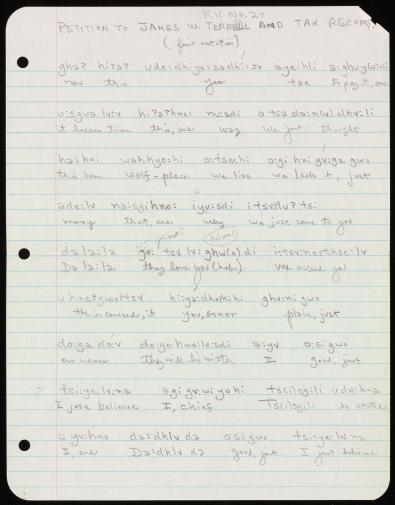 KK No. 27
PETITION TO JAMES W. TERRELL AND TAX RECORDS
(first notation)
gha? hi?a? ude:dhiyv:sadhi:sv aye:hli a:ghvy(v)di
now this year tax to pay it, one
u:sgwa lv:v hi?a?hno: nu:sdi o:tsa da:n(v)dhv:li
it became time this, and way we just thought
ha:hni wahhyo:hi o:tse:hi o:gi hni gv:ga gwo
this here wolf-place we live we lack it, just
ade:lv na:sgihno: iyu:sdi i:tsv:lu?tsi
money that, and why we just came to you
da la:la go: tsv lv:ghw(o)di i:tsv:ne:thse:lv
Da la:la they love you (hab.) we assure you
hi:ya:dho:hi ghv:ni gwo
you, donor plain, just
do:ga do:v do:go:hwe:le:sdi a:yv o:si gwo
our names they will be written I good, just
tsi:ye:lv:na agi gv:wi yu hi ts(i)sgili udv:hna
I just believe I, chief Ts(i)sgili he stated
a yv:hno da:dhlv da o:si gwo tsi:ye:lv:na
I, and Da:dhlv da good, just I just believe